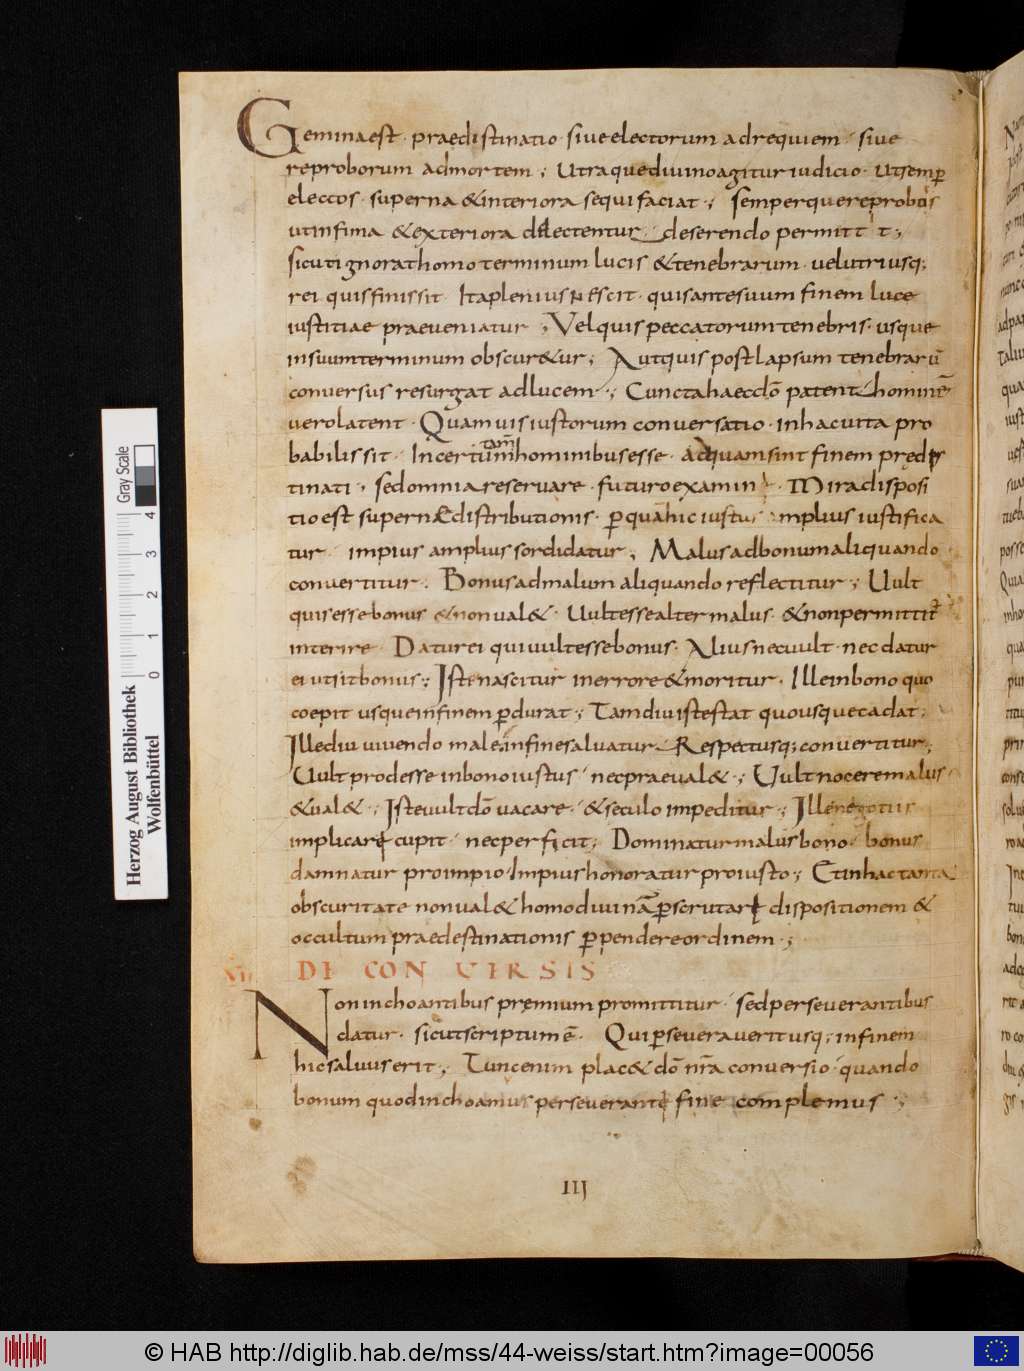 Geminaest · praedistinatio · siue electorum adrequiem · siue
reproborum admortem ; Utraque diuinoagitur iudicio · Utsemꝑ
electos · superna & interiora sequi faciat ·; Semperque reprobos
utinfima & exteriora delectentur · deserendo permitt t ·;
Sicut ignorathomo terminum lucis & tenebrarum · uelutriusq;
rei quis finis sit · Ita plenius Nescit · quis antesuum finem luce
iustitiae praeueniatur ; Vel quis peccatorum tenebris · usque
insuumterminum obscur&ur ; Aut quis post lapsum tenebrarū
conuersus resurgat adlucem ·; Cunctahaec dō patent · hominē
uero latent · Quamuis iustorum conuersatio · inhacuita pro
babilis sit · Incertum hominibus esse ·
tam̄
adquamsint finem predes
tinati · sed omnia reseruare · futuro examin · Mira disposi
tio est supernae distributionis · ꝑquāhic iustus amplius iustifica
tur impius amplius sordidatur ; Malus adbonum aliquando
conuertitur · Bonus admalum aliquando reflectitur ·; Uult
quis esse bonus & nonual& · Uult esse alter malus · & nonpermittit̄
interire · Datur ei quiuult esse bonus · Alius necuult · nec datur
ei utsit bonus ·; Iste nascitur inerrore & moritur · Ille inbono quo
coepit usque infinem ꝑdurat ·; Tamdiu iste stat quousque cadat ·
Ille diu uiuendo male · infine saluatur · Respectusq; conuertitur ;
Uult prodesse inbono iustus · nec praeual& ·; Uult nocere malus ·
& ual& ·; Iste uult dō uacare · & seculo impeditur ·; Ille negotiis
implicare cupit · nec perficit ; Dominatur malus bono · bonus
damnatur proimpio · Impius honoratur proiusto ·; Etinhac tanta
obscuritate nonual& homo diuinā ꝑscrutare dispositionem &
occultum praedestinationis ꝑpendere ordinem ·;
VII DE CONVERSIS
Non inchoantibus premium promittitur · sed perseuerantibus
datur · sicutscriptumē · Qui ꝑseuerauerit usq; infinem
hic saluus erit ; Tuncenim plac& dō nr̄a conuersio · quando
bonum quod inchoamus perseuerante fine complemus ·;
III
Gray Scale
0 1 2 3 4
Herzog August Bibliothek
Wolfenbüttel
© HAB http://diglib.hab.de/mss/44-weiss/start.htm?image=00056